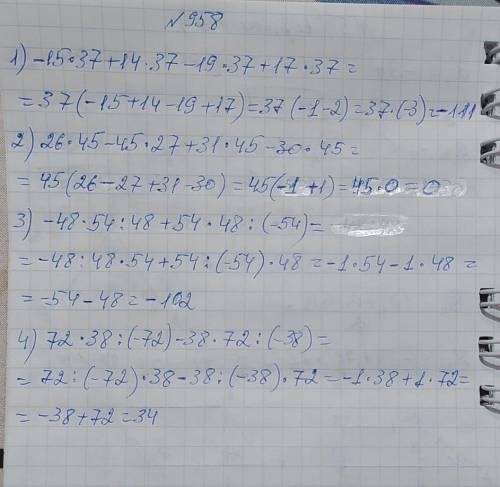 №958
1) -15·37+14·37-19·37+17·37=
=37(-15+14-19+17)=37(-1-2)=37·(-3)=-111
2) 26·45-45·27+31·45-30·45=
=45(26-27+31-30)=45(-1+1)=45·0=0
3) -48·54:48+54·48:(-54)=
=-48:48·54+54:(-54)·48=-1·54-1·48=
=-54-48=-102
4) 72·38:(-72)-38·72:(-38)=
=72:(-72)·38-38:(-38)·72=-1·38+1·72=
=-38+72=34